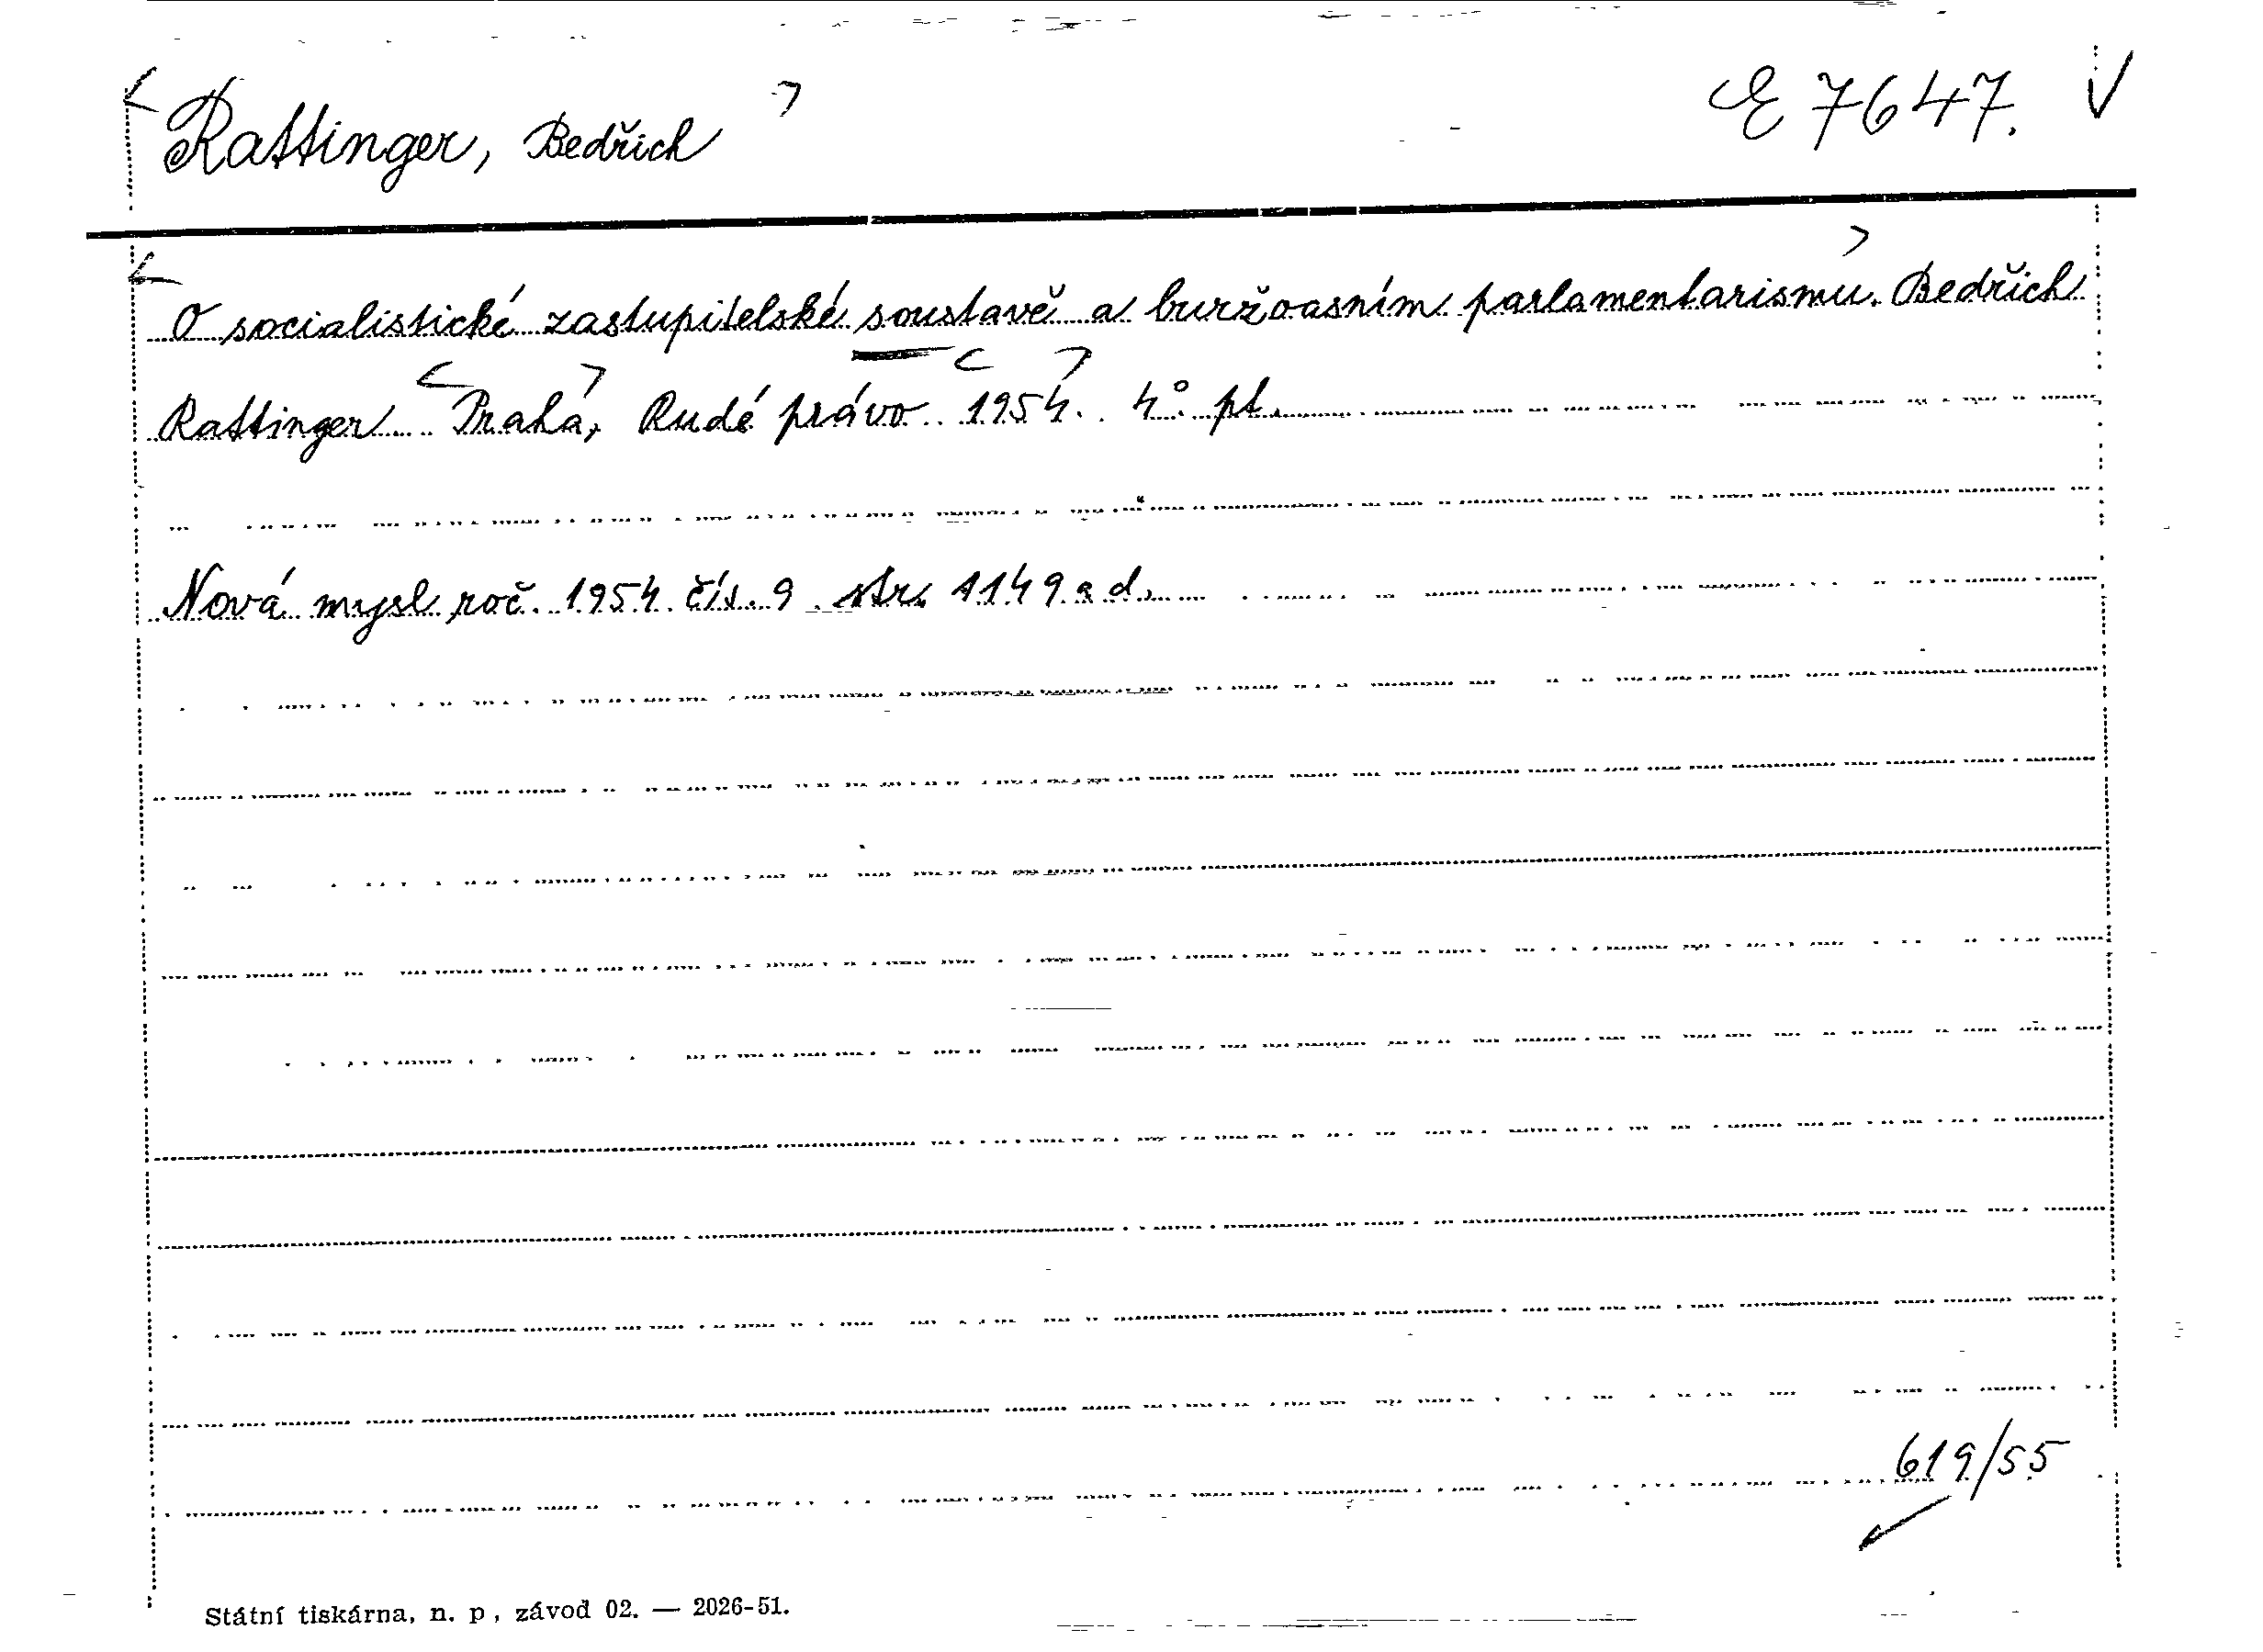 Rattinger, Bedřich E 7647.
O socialistické zastupitelské soustavě a buržoasním parlamentarismu. Bedřich
Rattinger Praha, Rudé právo 1954. 4°. pt.
Nová mysl roč. 1954 čís. 9 str. 1149 a d.
619/55
Státní tiskárna, n. p, závod 02. — 2026-51.